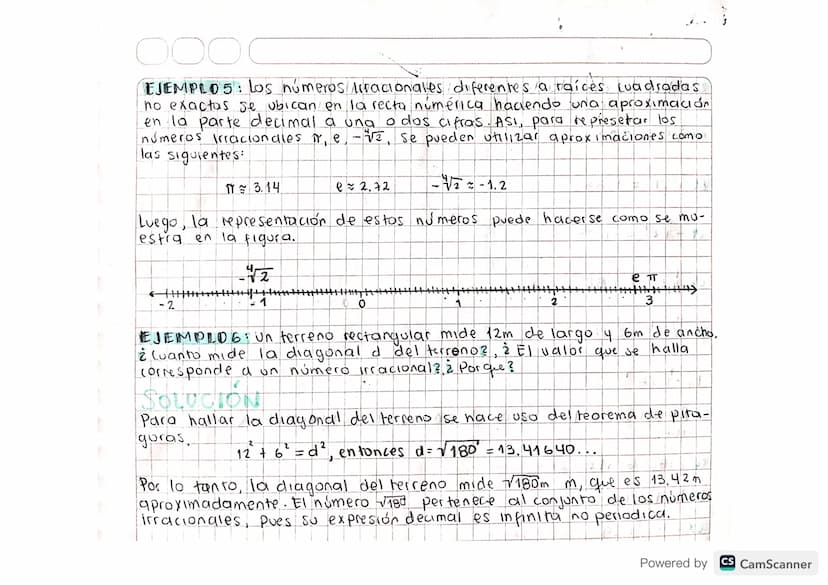 EJEMPLO 5: Los números irracionales diferentes a raíces cuadradas
no exactas se ubican en la recta numérica haciendo una aproximación
en la parte decimal a una o dos cifras. ASI, para represetar los
números irracionales π, e, -∜2, se pueden utilizar aproximaciones como
las siguientes:
π ≈ 3.14 e ≈ 2,72 -∜2 ≈ -1.2
Luego, la representación de estos números puede hacerse como se mu-
estra en la figura.
-∜2 e π
-2 -1 0 1 2 3
EJEMPLO 6: un terreno rectangular mide 12m de largo y 6m de ancho.
¿Cuanto mide la diagonal d del terreno?, ¿El valor que se halla
corresponde a un número irracional?¿Por que?
SOLUCIÓN
Para hallar la diagonal del terreno se hace uso del teorema de pita-
goras.
12² + 6² = d², entonces d = √180 = 13,41640...
Por lo tanto, la diagonal del terreno mide √180m m, que es 13,42m
aproximadamente. El número √180 pertenece al conjunto de los números
irracionales, pues su expresión decimal es infinita no periodica.
Powered by CS CamScanner